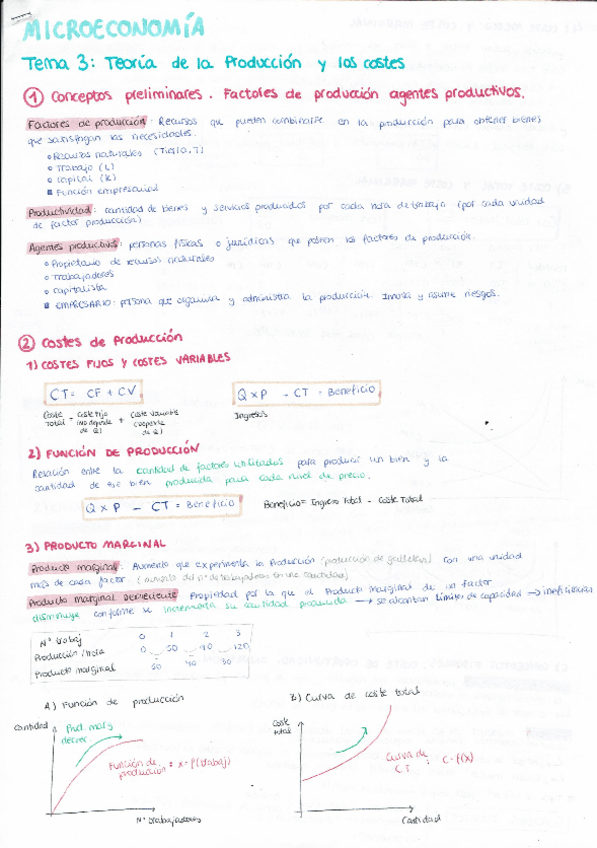 MICROECONOMÍA
Tema 3: Teoría de la Producción y los costes
① Conceptos preliminares. Factores de producción agentes productivos.
Factores de producción: Recursos que pueden combinarse en la producción para obtener bienes
que satisfagan las necesidades.
Recursos naturales (Tierra, T)
Trabajo (L)
Capital (K)
Función empresarial
Productividad: cantidad de bienes y servicios producidos por cada hora de trabajo (por cada unidad
de factor producción)
Agentes productivos: personas físicas o jurídicas que poseen los factores de producción.
Propietario de recursos naturales
Trabajadores
Capitalista
EMPRESARIO: persona que organiza y administra la producción. Innova y asume riesgos.
② Costes de Producción
1) COSTES FIJOS Y COSTES VARIABLES
CT = CF + CV
Q x P - CT = Beneficio
Coste total = Coste fijo (no depende de Q) + Coste variable (depende de Q)
Ingresos
2) FUNCIÓN DE PRODUCCIÓN
Relación entre la cantidad de factores utilizados para producir un bien y la
cantidad de ese bien producida para cada nivel de precio.
Q x P - CT = Beneficio
Beneficio = Ingreso Total - Coste Total
3) PRODUCTO MARGINAL
Producto marginal: Aumento que experimenta la Producción (producción de galletas) con una unidad
más de cada factor (aumento del nº de trabajadores en una cantidad)
Producto marginal decreciente: Propiedad por la que el Producto Marginal de un factor
disminuye conforme se incrementa su cantidad producida → se alcanzan límites de capacidad → ineficiencias
Nº trabaj 0 1 2 3
Producción / hora 0 50 90 120
Producto marginal 50 40 30
A) Función de producción
B) Curva de coste total
Cantidad
Prod marg
decrec
Función de
producción = x = f(trabaj)
Nº trabajadores
Coste
total
Curva de
CT : C = f(x)
Cantidad